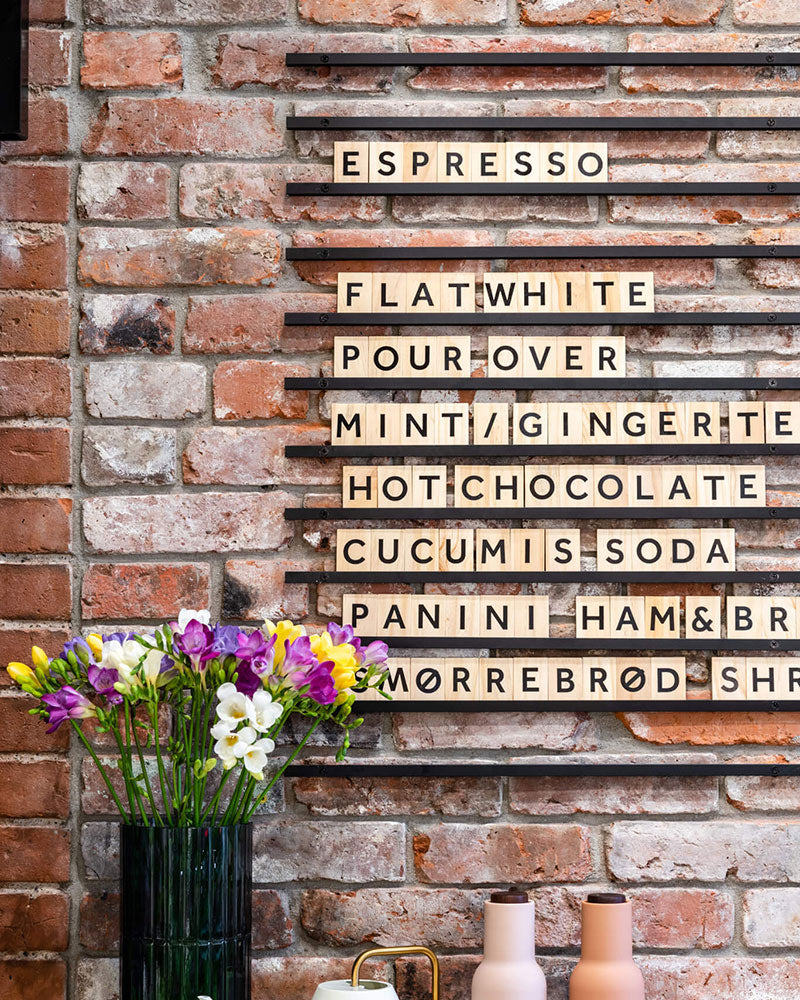 ESPRESSO
FLAT WHITE
POUR OVER
MINT/GINGER TE
HOT CHOCOLATE
CUCUMIS SODA
PANINI HAM & BR
SMØRREBRØD SHR